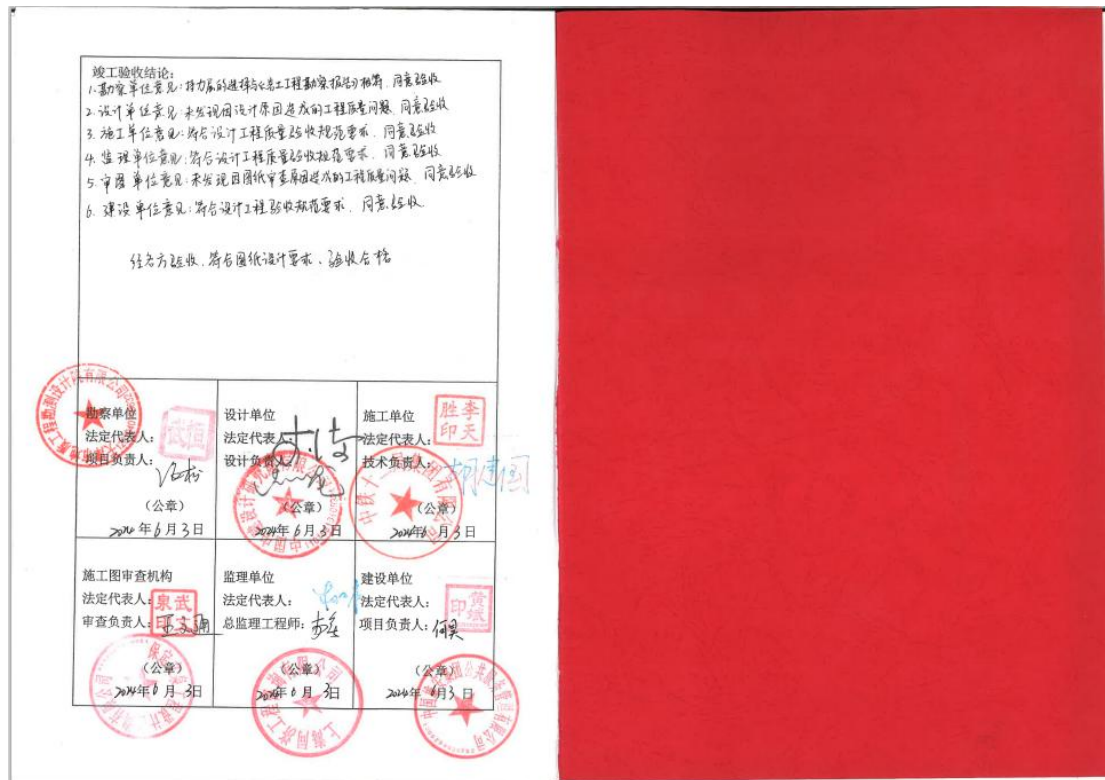 竣工验收结论：
1.勘察单位意见：持力层的选择与《岩土工程勘察报告》相符，同意验收
2.设计单位意见：未发现因设计原因造成的工程质量问题，同意验收
3.施工单位意见：符合设计工程质量验收规范要求，同意验收
4.监理单位意见：符合设计工程质量验收规范要求，同意验收
5.审图单位意见：未发现因图纸审查原因造成的工程质量问题，同意验收
6.建设单位意见：符合设计工程验收规范要求，同意验收
经各方验收，符合图纸设计要求，验收合格
勘察单位
法定代表人：
项目负责人：
（公章）
2024年6月3日
设计单位
法定代表人：
设计负责人：
（公章）
2024年6月3日
施工单位
法定代表人：
李天胜印
技术负责人：胡建国
（公章）
2024年6月3日
中铁十二局集团有限公司
施工图审查机构
法定代表人：
武文泉印
审查负责人：
（公章）
2024年6月3日
监理单位
法定代表人：
总监理工程师：
（公章）
2024年6月3日
建设单位
法定代表人：
项目负责人：何昊
（公章）
2024年6月3日